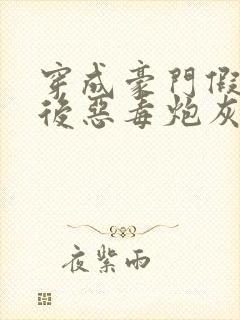 穿成豪門假
後惡毒炮灰
夜紫雨